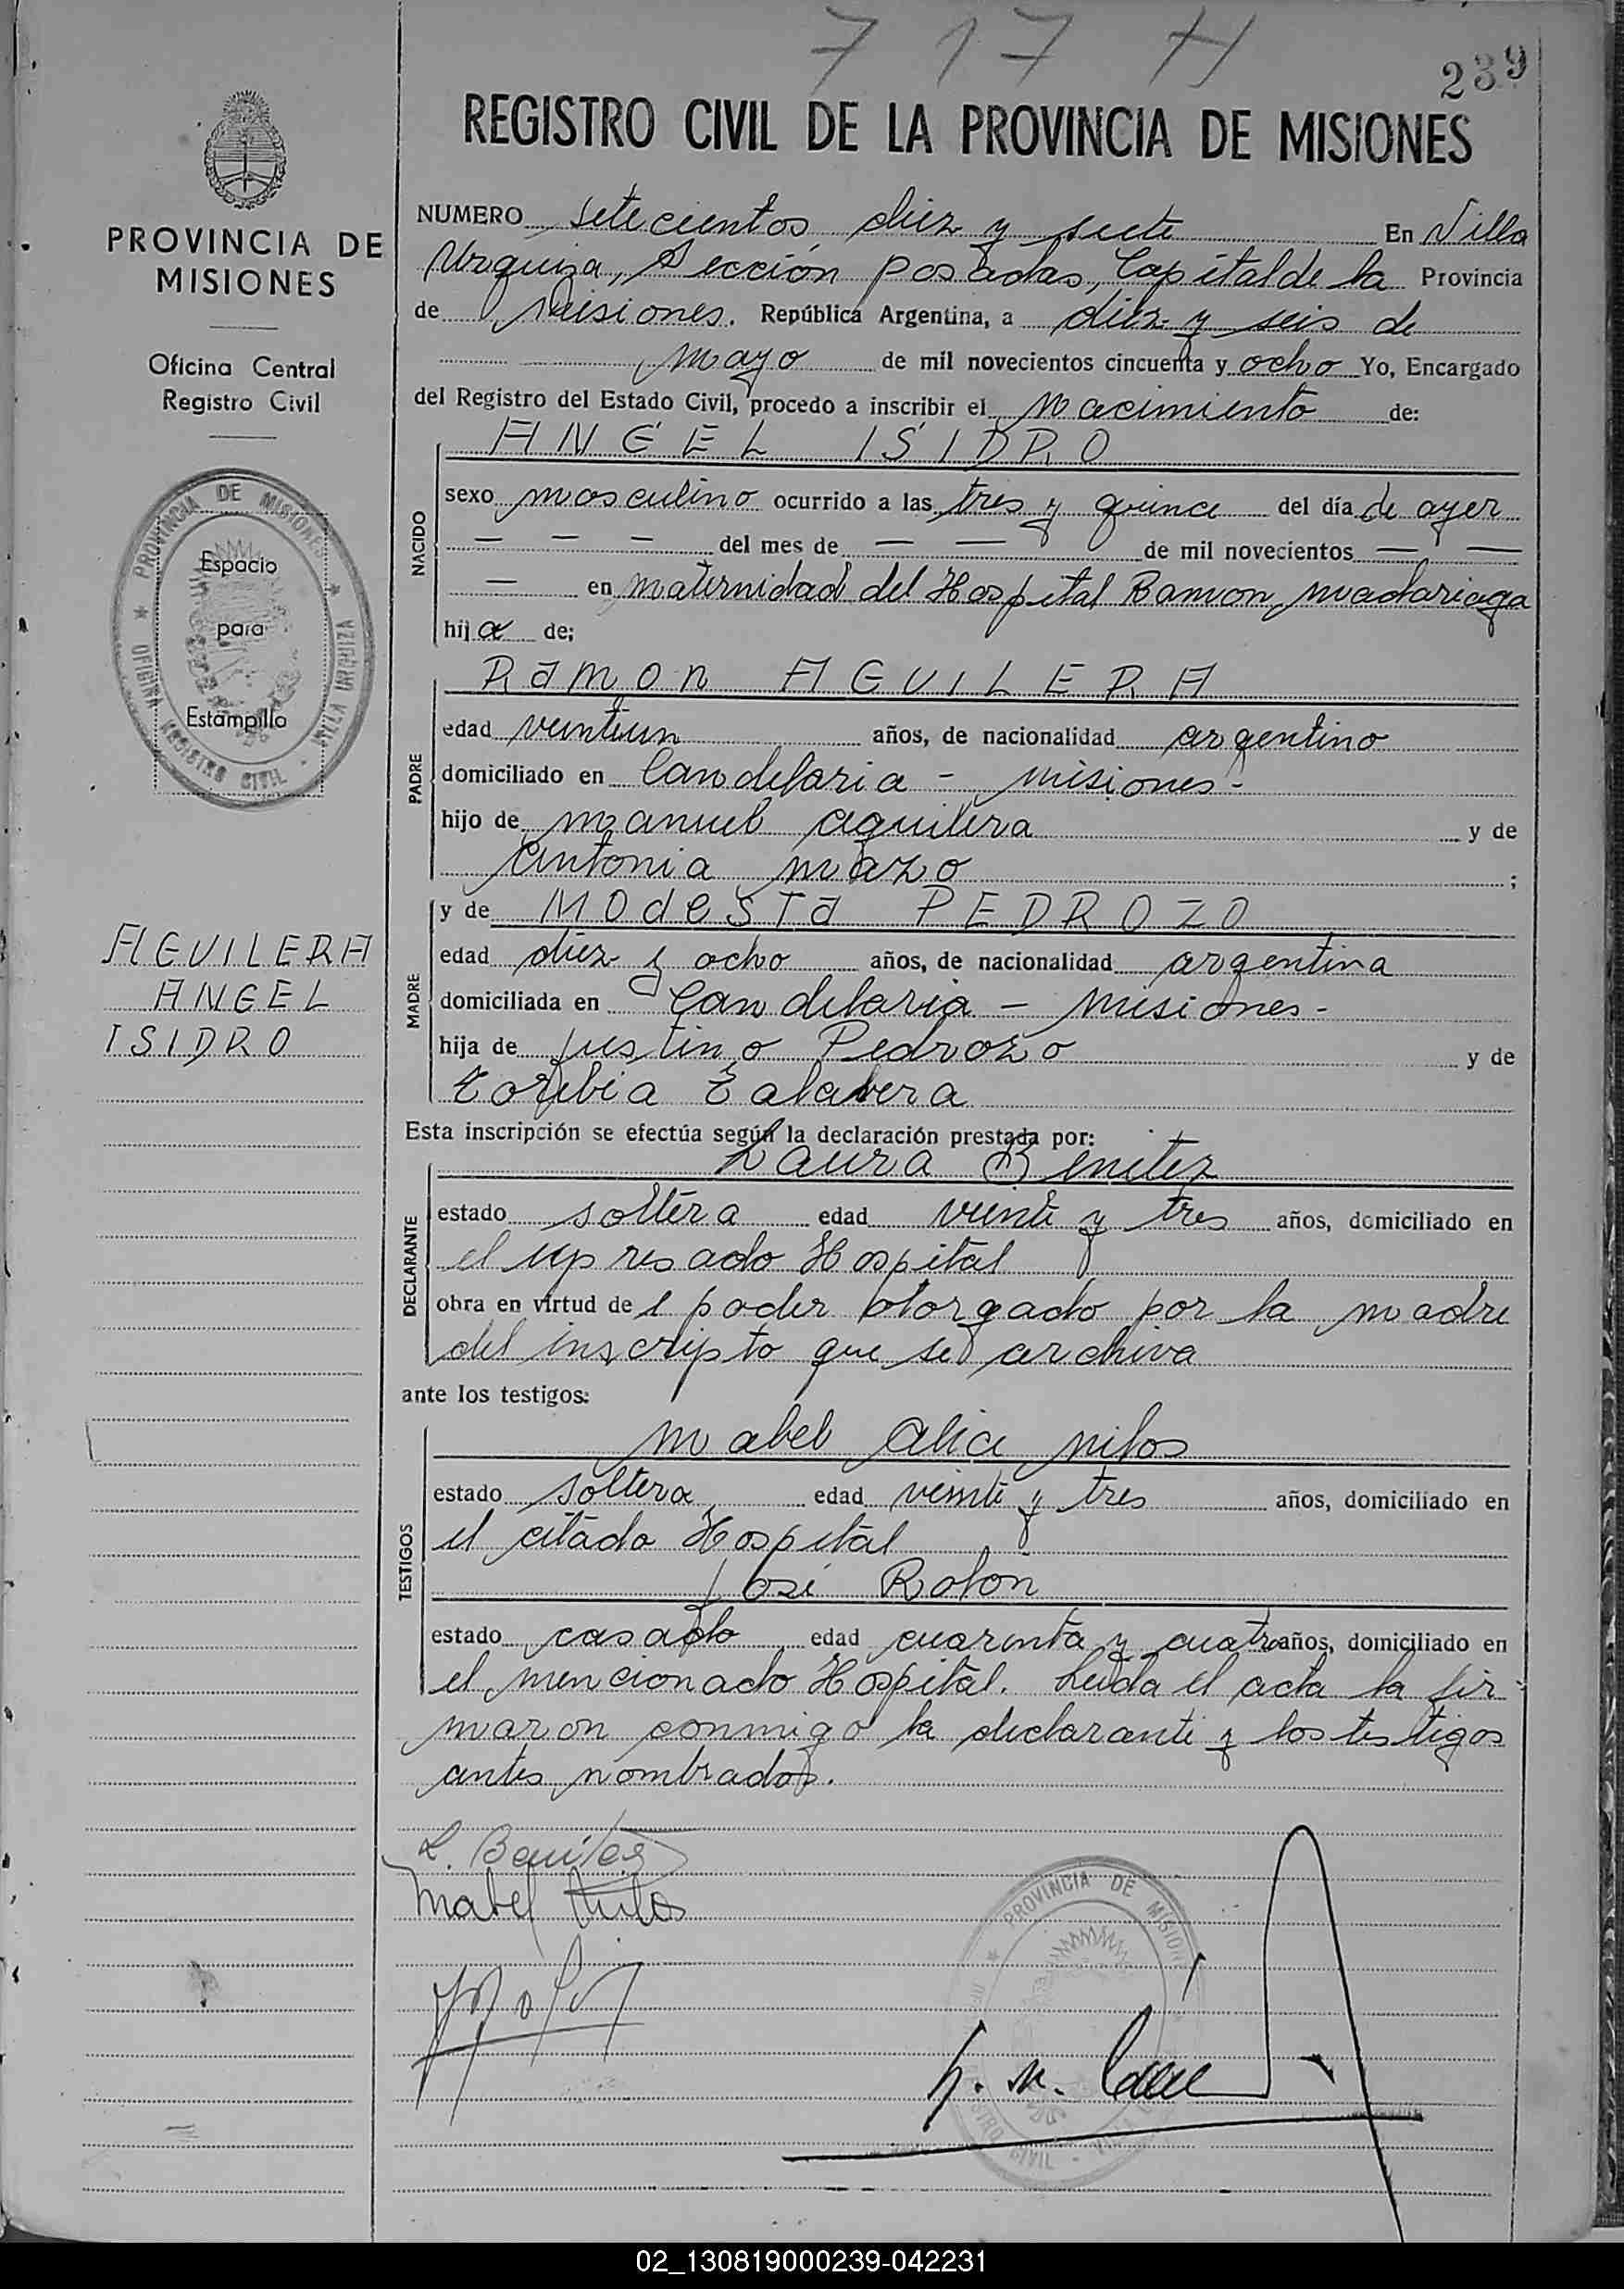 7 17 H
239
REGISTRO CIVIL DE LA PROVINCIA DE MISIONES
PROVINCIA DE
MISIONES
Oficina Central
Registro Civil
PROVINCIA DE MISIONES * OFICINA REGISTRO CIVIL - VILLA URQUIZA *
Espacio
para
Estampilla
AGUILERA
ANGEL
ISIDRO
NUMERO setecientos diez y siete En Villa
Urquiza, Sección posadas, Capital de la Provincia
de Misiones. República Argentina, a diez y seis de
mayo de mil novecientos cincuenta y ocho Yo, Encargado
del Registro del Estado Civil, procedo a inscribir el nacimiento de:
NACIDO
ANGEL ISIDRO
sexo masculino ocurrido a las tres y quince del día de ayer
— — — del mes de — — de mil novecientos — —
— en maternidad del Hospital Ramon madariaga
hij o de;
PADRE
Ramon AGUILERA
edad veintiun años, de nacionalidad argentino
domiciliado en Candelaria - misiones -
hijo de manuel aguilera y de
antonia mazo ;
MADRE
y de Modesta PEDROZO
edad diez y ocho años, de nacionalidad argentina
domiciliada en Candelaria - misiones -
hija de justino Pedrozo y de
toribia talavera
Esta inscripción se efectúa según la declaración prestada por:
DECLARANTE
Laura Benitez
estado soltera edad veinte y tres años, domiciliado en
el expresado Hospital
obra en virtud de l poder otorgado por la madre
del inscripto que se archiva
ante los testigos:
TESTIGOS
mabel alice nilos
estado soltera edad veinte y tres años, domiciliado en
el citado Hospital
josé Rolon
estado casado edad cuarenta y cuatro años, domiciliado en
el mencionado Hospital. Leida el acta la fir
maron conmigo la declarante y los testigos
antes nombrados.
L. Benitez
Mabel Nilos
PROVINCIA DE MISIONES
02_130819000239-042231